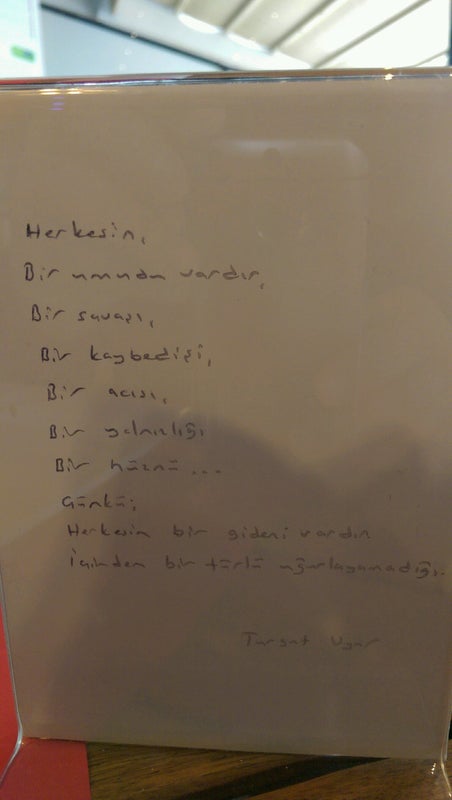 Herkesin,
Bir umudu vardır,
Bir savaşı,
Bir kaybedişi,
Bir acısı,
Bir yalnızlığı
Bir hüznü...
Çünkü;
Herkesin bir gideni vardır
İçinden bir türlü uğurlayamadığı.
Turgut Uyar